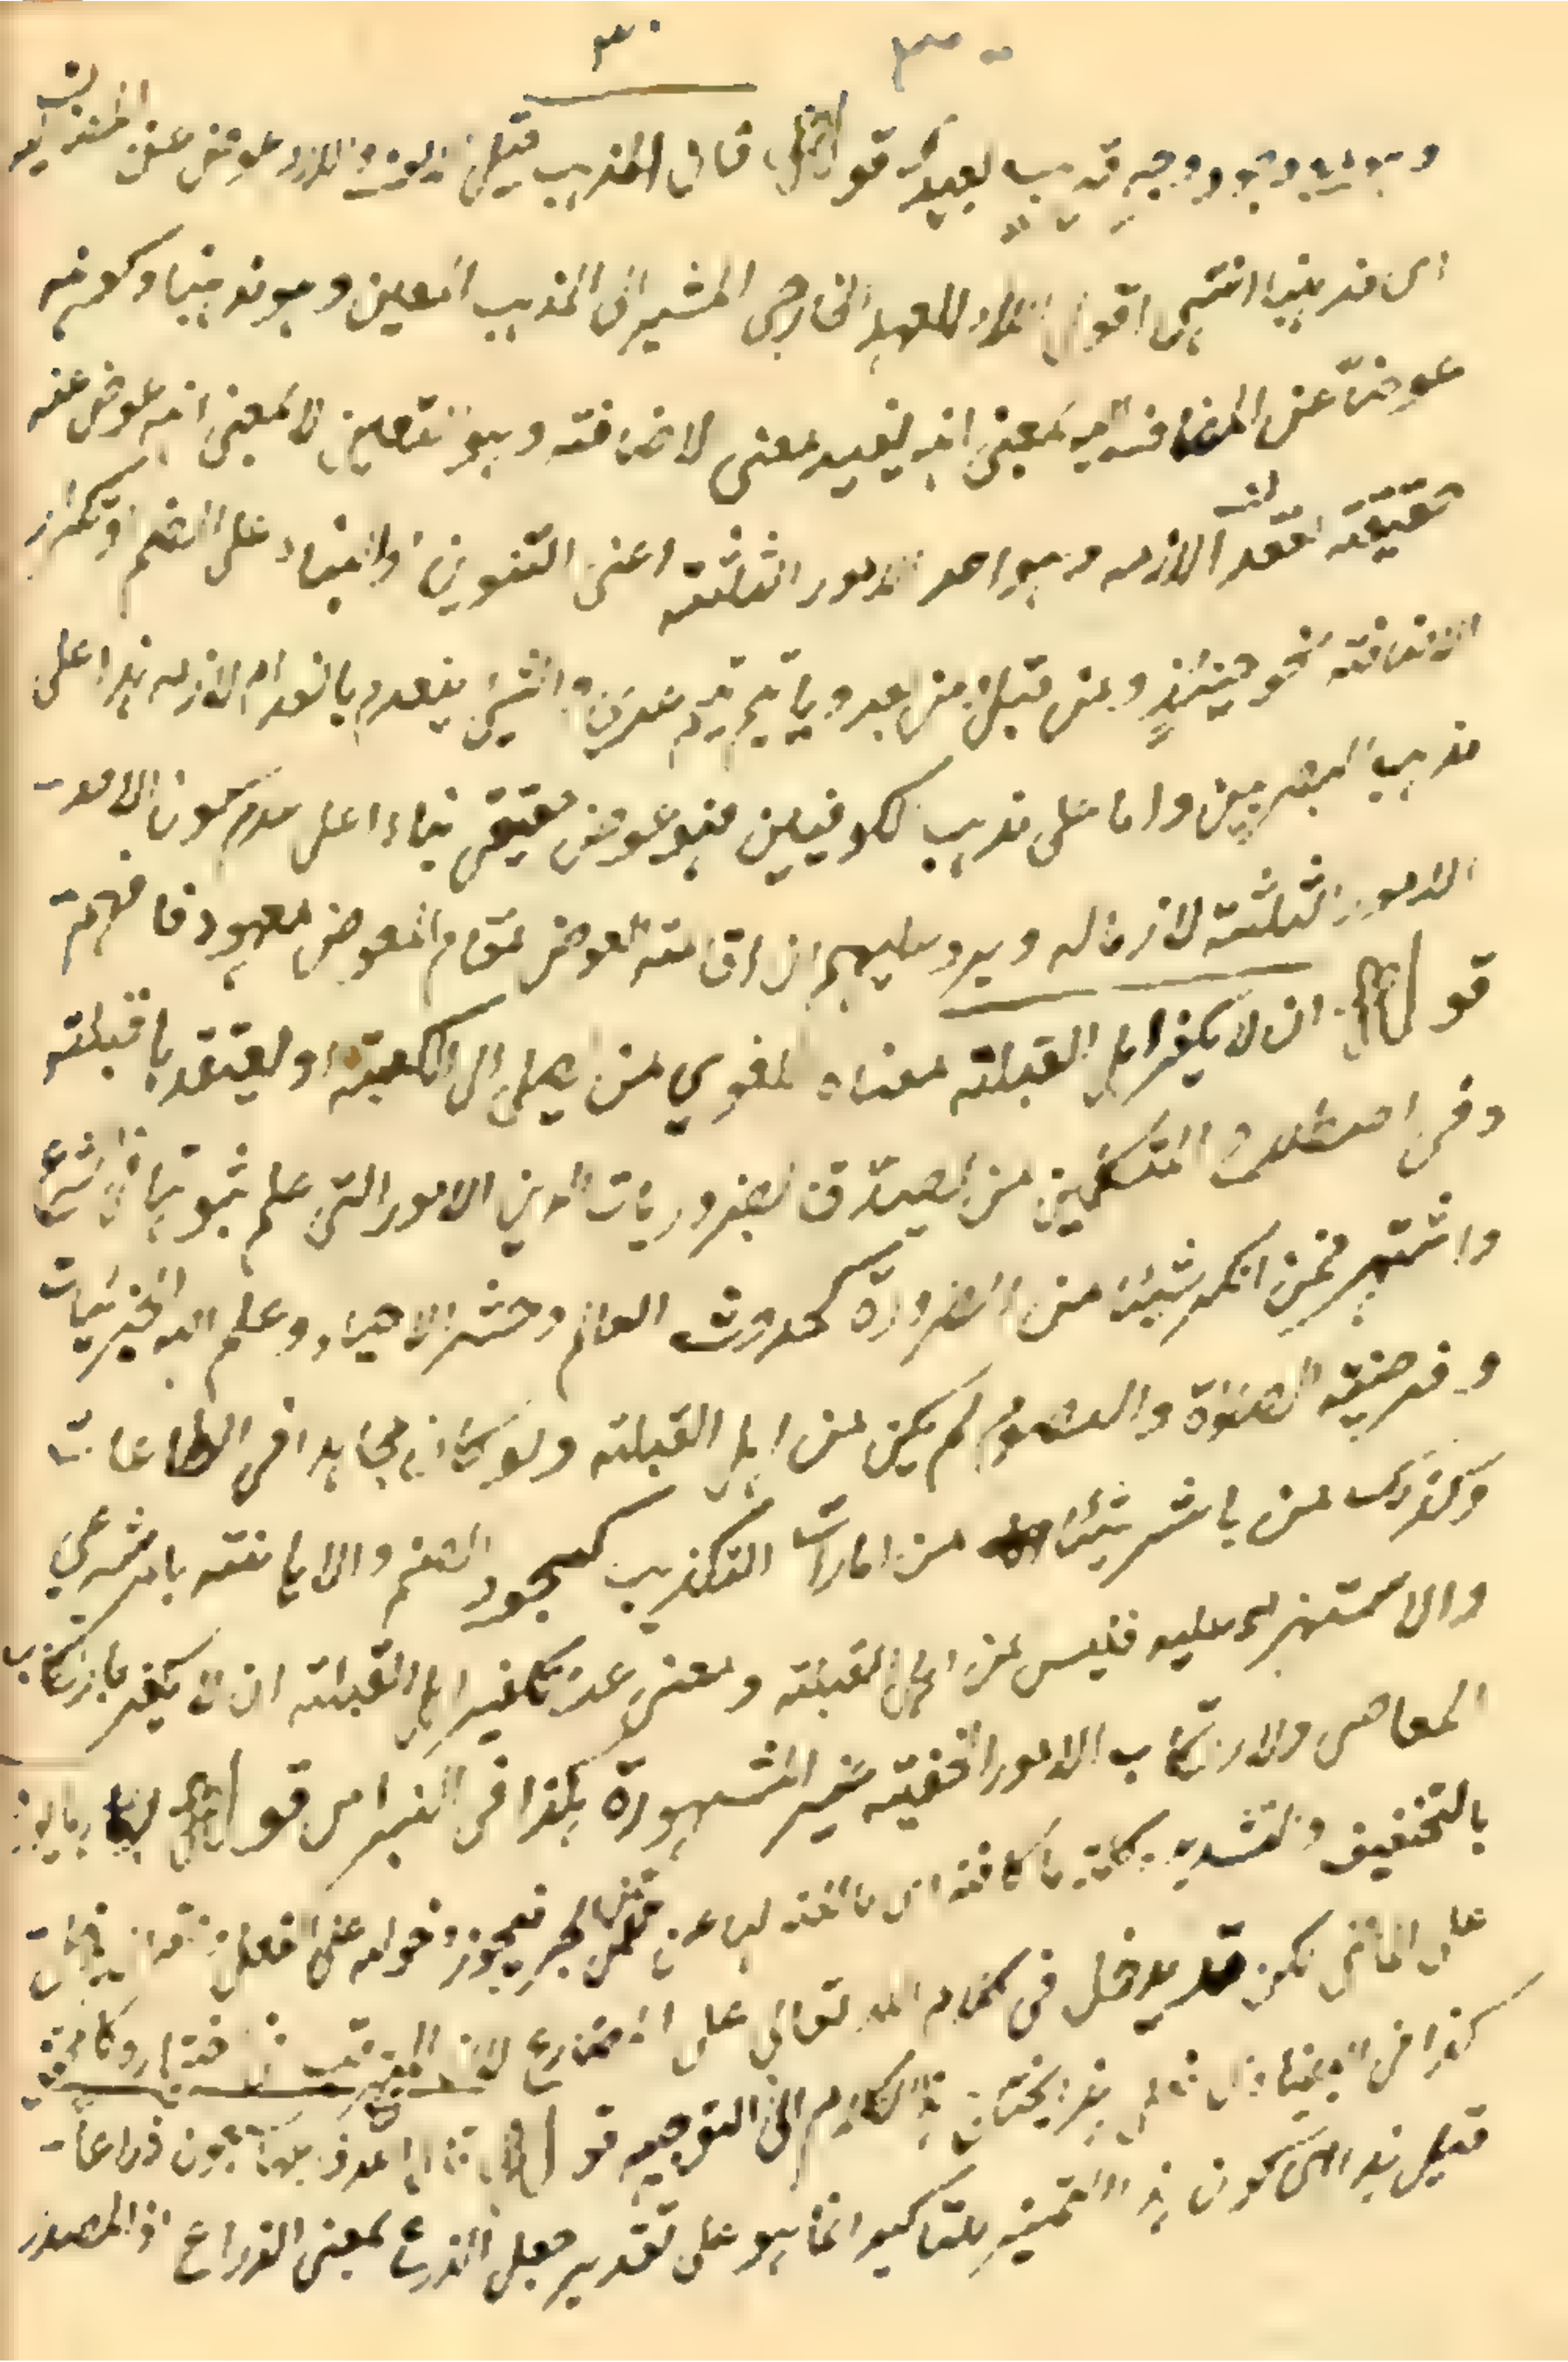 ٣٠ ٣٠
وجه قريب بعيد قوله قال المذهب قيل عوض عن المضاف اليه
اى مذهبنا انتهى اقول المراد للعهد الخارجى المشير الى المذهب المعين وهو مذهبنا وكونه
عوضا عن المضاف اليه بمعنى انه يفيد معنى الاضافة وهو التعيين لا بمعنى انه عوض عنه
حقيقة لفقد لازمه وهو احد الامور الثلثة اعنى التنوين او البناء على الضم او تكرار
الاضافة نحو حينئذ ومن قبل ومن بعد ويا تيم تيم عدى والشئ ينعدم بانعدام لازمه هذا على
مذهب البصريين واما على مذهب الكوفيين فهو عوض حقيقى بناء على عدم كون الامور
الامور الثلثة لازما له ويرد عليهم ان اقامة العوض مقام المعوض معهود فافهم
قوله ان لا يكفر اهل القبلة معناه لغوي من يصلى الى الكعبة او يعتقد بالقبلة
وفى اصطلاح المتكلمين من يصدق بضروريات الدين الامور التى علم ثبوتها فى الشرع
واشتهر فمن انكر شيئا من الضرورة كحدوث العالم وحشر الاجساد وعلم الله الجزئيات
وفرضية الصلوة والصوم لم يكن من اهل القبلة ولو كان مجاهدا فى الطاعات
وكذلك من باشر شيئا من امارات التكذيب كسجود الصنم والاهانة بامر شرعي
والاستهزاء عليه فليس من اهل القبلة ومعنى عدم تكفير اهل القبلة ان لا يكفر بارتكاب
المعاصى ولا ارتكاب الامور الخفية غير المشهورة هكذا فى النبراس قوله ربما
بالتخفيف والتشديد ما كافة اى مانعة لها عن عمل الجر فيجوز دخوله على الفعل
على الماضى لكن قد يدخل فى كلام الله تعالى على المضارع
كذا فى هذا الكلام الى التوجيه قوله سبعون ذراعا
قيل هذا اى كون هذا التميز للتاكيد انما هو على تقدير جعل الذرع بمعنى الذراع اذ المصدر